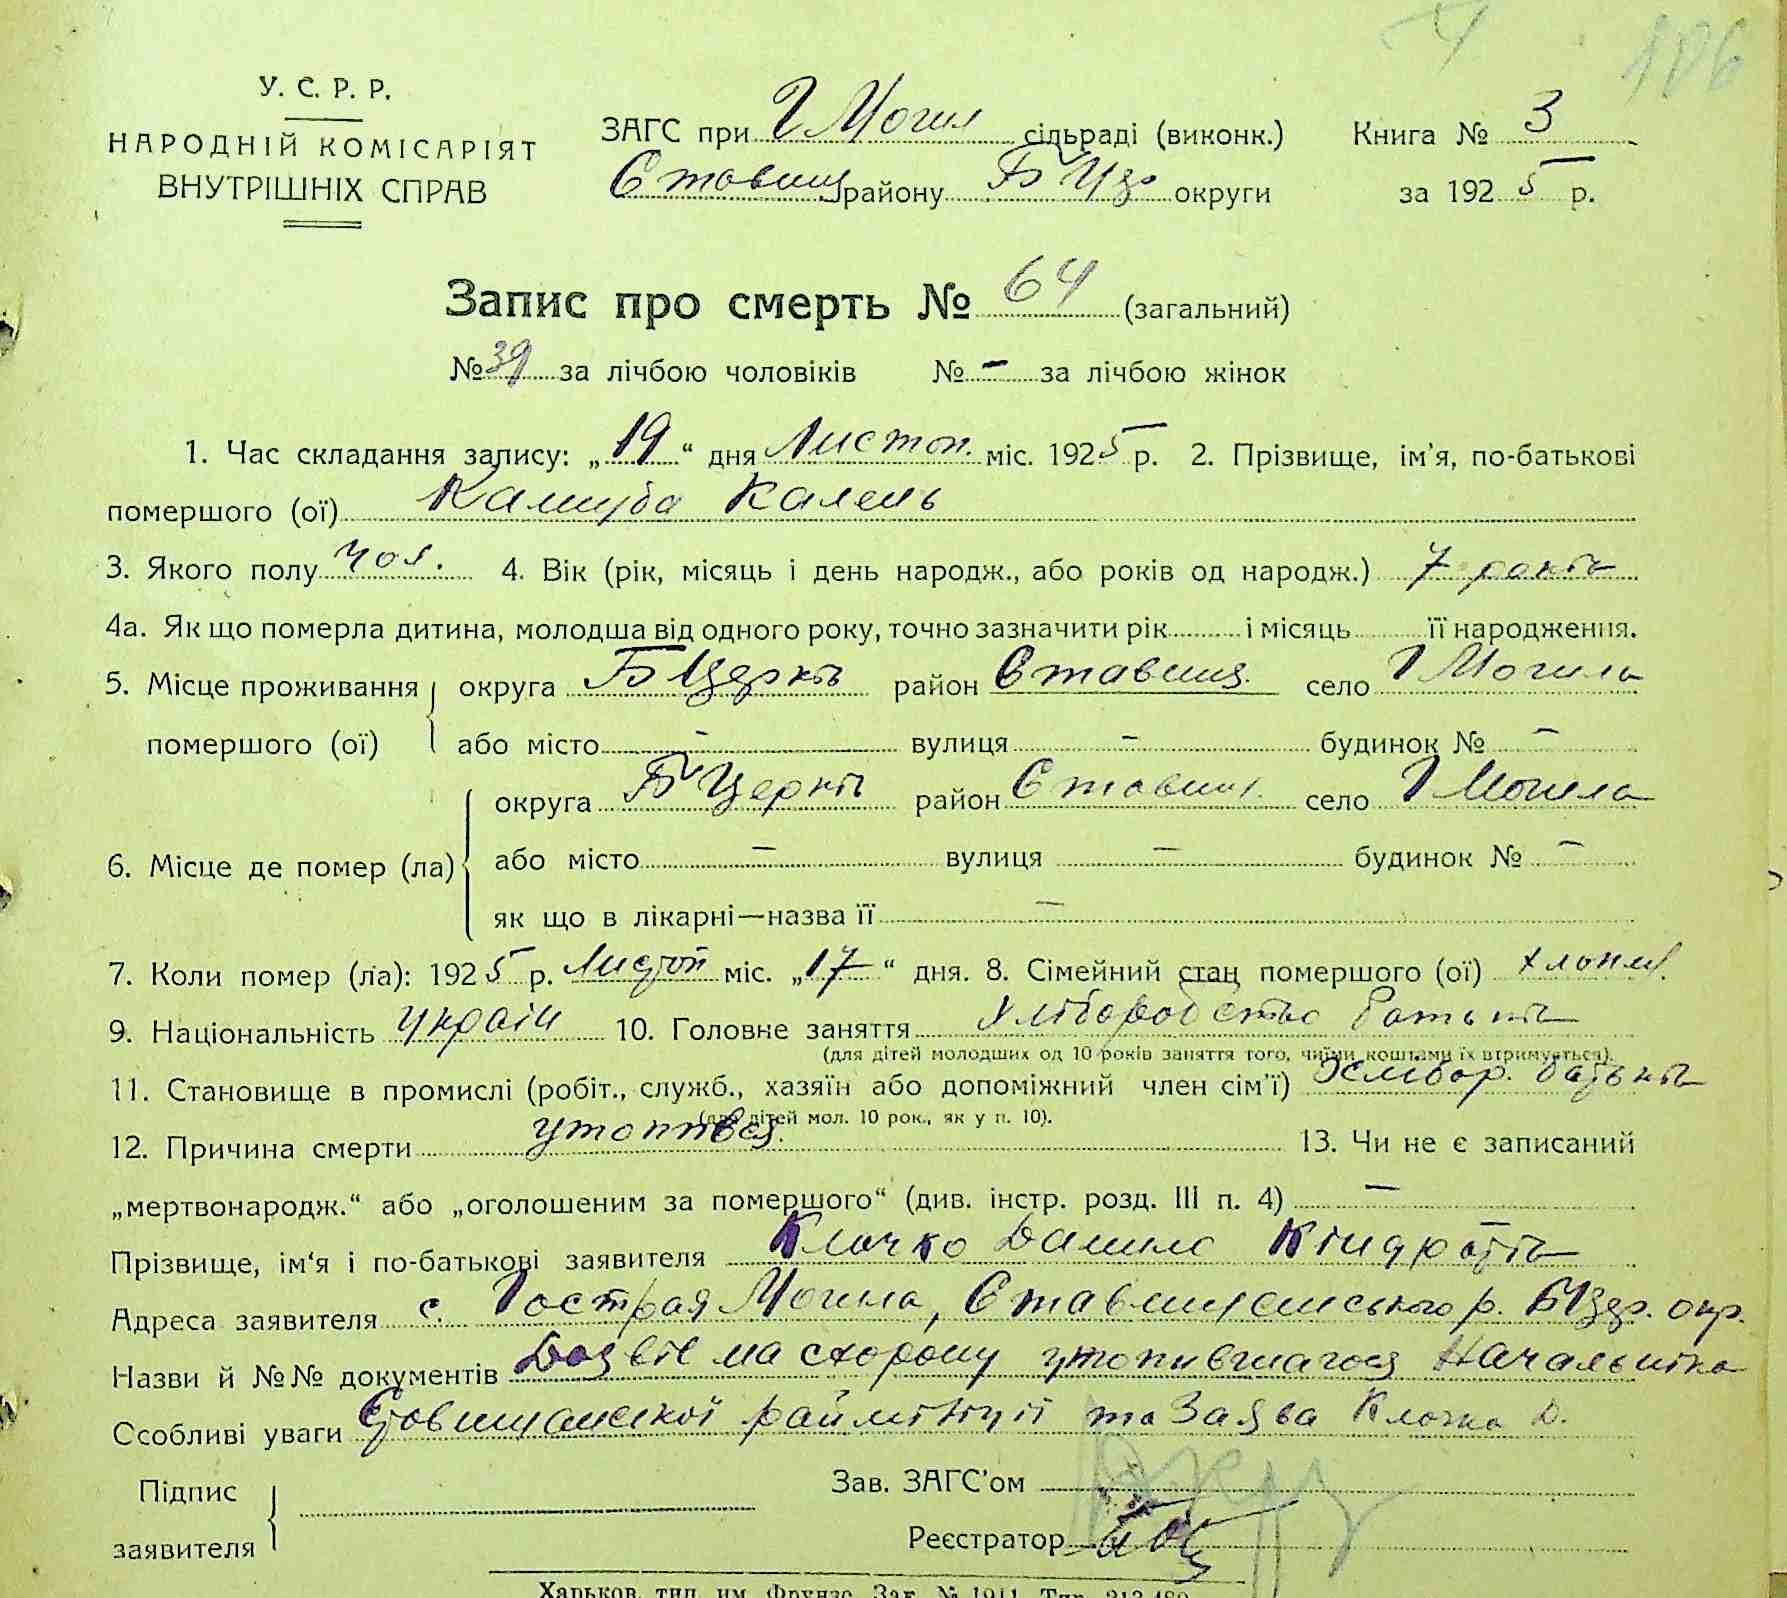 106
У. С. Р. Р.
НАРОДНІЙ КОМІСАРІЯТ
ВНУТРІШНІХ СПРАВ
ЗАГС при Г Могил сільраді (виконк.) Книга № 3
Ставищ району Б Цер округи за 1925 р.
Запис про смерть № 64 (загальний)
№ 39 за лічбою чоловіків № – за лічбою жінок
1. Час складання запису: „19“ дня Листоп. міс. 1925 р. 2. Прізвище, ім'я, по-батькові
помершого (ої)
3. Якого полу чол. 4. Вік (рік, місяць і день народж., або років од народж.) 7 років
4а. Як що померла дитина, молодша від одного року, точно зазначити рік і місяць її народження.
5. Місце проживання округа Б Церкв район Ставищ. село Г Могила
помершого (ої) або місто – вулиця – будинок № –
округа Б Церкв район Ставищ. село Г Могила
6. Місце де помер (ла) або місто – вулиця – будинок № –
як що в лікарні—назва її –
7. Коли помер (ла): 1925 р. Листоп міс. „17“ дня. 8. Сімейний стан помершого (ої) хлопец.
9. Національність україн 10. Головне заняття Хліборобство батьків
(для дітей молодших од 10 років заняття того, чиїми коштами їх втримується).
11. Становище в промислі (робіт., служб., хазяїн або допоміжний член сім'ї) Хлібор. батьків
(для дітей мол. 10 рок., як у п. 10).
12. Причина смерти утопився. 13. Чи не є записаний
„мертвонародж.“ або „оголошеним за помершого“ (див. інстр. розд. III п. 4) –
Прізвище, ім'я і по-батькові заявителя Клочко Данило Кіндратів
Адреса заявителя с. Гострая Могила, Ставищенського р. БЦер. окр.
Назви й №№ документів Дозвіл на схорону утопившагося Начальника
Особливі уваги Ставищанської райміліції та Заява Клочка Д.
Підпис
заявителя
Зав. ЗАГС'ом
Реєстратор
Харьков, тип. им. Фрунзе. Зак. № 1911. Тир. 213.480